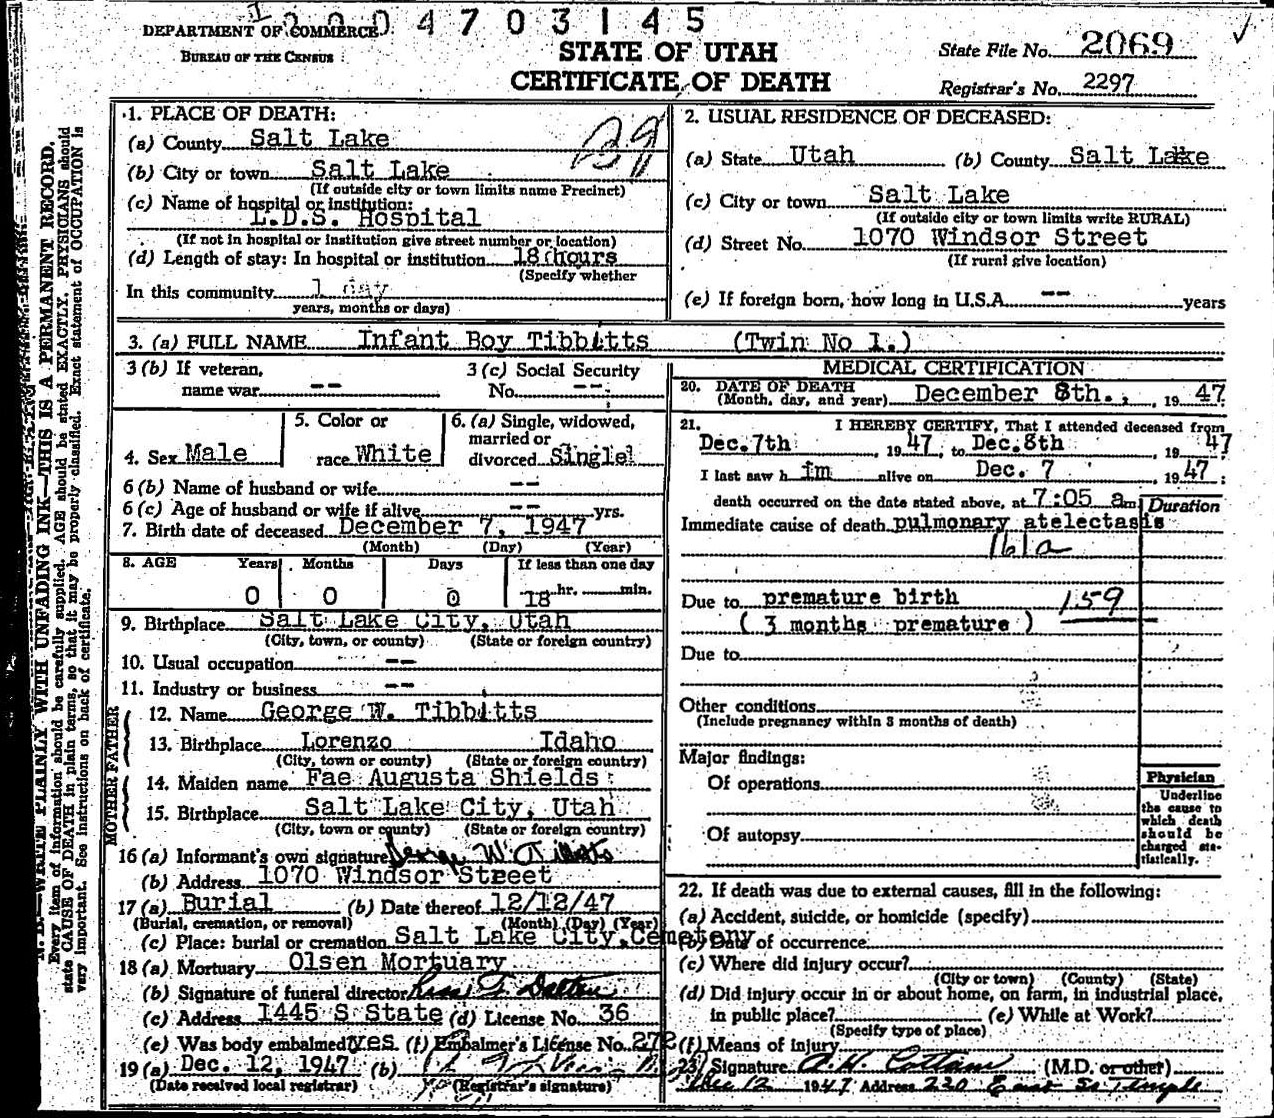 1 2004703145
DEPARTMENT OF COMMERCE
BUREAU OF THE CENSUS
STATE OF UTAH
CERTIFICATE OF DEATH
State File No. 2069
Registrar's No. 2297
N. B.—WRITE PLAINLY WITH UNFADING INK—THIS IS A PERMANENT RECORD.
Every item of information should be carefully supplied. AGE should be stated EXACTLY. PHYSICIANS should
state CAUSE OF DEATH in plain terms, so that it may be properly classified. Exact statement of OCCUPATION is
very important. See instructions on back of certificate.
1. PLACE OF DEATH:
(a) County Salt Lake
29
(b) City or town Salt Lake
(If outside city or town limits name Precinct)
(c) Name of hospital or institution:
L.D.S. Hospital
(If not in hospital or institution give street number or location)
(d) Length of stay: In hospital or institution 18 hours
(Specify whether
In this community 1 day
years, months or days)
2. USUAL RESIDENCE OF DECEASED:
(a) State Utah (b) County Salt Lake
(c) City or town Salt Lake
(If outside city or town limits write RURAL)
(d) Street No. 1070 Windsor Street
(If rural give location)
(e) If foreign born, how long in U.S.A. -- years
3. (a) FULL NAME Infant Boy Tibbitts (Twin No 1.)
3 (b) If veteran, name war --
3 (c) Social Security No. --
4. Sex Male
5. Color or race White
6. (a) Single, widowed, married or divorced Single
6 (b) Name of husband or wife --
6 (c) Age of husband or wife if alive -- yrs.
7. Birth date of deceased December 7, 1947
(Month) (Day) (Year)
8. AGE Years Months Days If less than one day
0 0 0 18 hr. min.
9. Birthplace Salt Lake City, Utah
(City, town, or county) (State or foreign country)
10. Usual occupation --
11. Industry or business --
FATHER
12. Name George W. Tibbitts
13. Birthplace Lorenzo Idaho
(City, town or county) (State or foreign country)
MOTHER
14. Maiden name Fae Augusta Shields
15. Birthplace Salt Lake City, Utah
(City, town or county) (State or foreign country)
16 (a) Informant's own signature George W. Tibbitts
(b) Address 1070 Windsor Street
17 (a) Burial (b) Date thereof 12/12/47
(Burial, cremation, or removal) (Month) (Day) (Year)
(c) Place: burial or cremation Salt Lake City, Cemetery
18 (a) Mortuary Olsen Mortuary
(b) Signature of funeral director
(c) Address 1445 S State (d) License No. 36
(e) Was body embalmed yes (f) Embalmer's License No. 272
19 (a) Dec. 12, 1947 (b)
(Date received local registrar) (Registrar's signature)
MEDICAL CERTIFICATION
20. DATE OF DEATH
(Month, day, and year) December 8th., 1947
21. I HEREBY CERTIFY, That I attended deceased from
Dec. 7th, 1947, to Dec. 8th, 1947
I last saw him alive on Dec. 7, 1947;
death occurred on the date stated above, at 7:05 am
Duration
Immediate cause of death pulmonary atelectasis
161a
Due to premature birth 159
( 3 months premature )
Due to
Other conditions
(Include pregnancy within 3 months of death)
Major findings:
Of operations
Of autopsy
Physician
Underline
the cause to
which death
should be
charged sta-
tistically.
22. If death was due to external causes, fill in the following:
(a) Accident, suicide, or homicide (specify)
(b) Date of occurrence
(c) Where did injury occur?
(City or town) (County) (State)
(d) Did injury occur in or about home, on farm, in industrial place,
in public place? (e) While at Work?
(Specify type of place)
(f) Means of injury
23. Signature A. H. Cottam (M.D. or other)
Dec 12 1947 Address 220 East So Temple